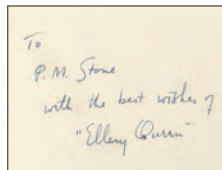 To
P. M. Stone
with the best wishes of
"Ellery Queen"